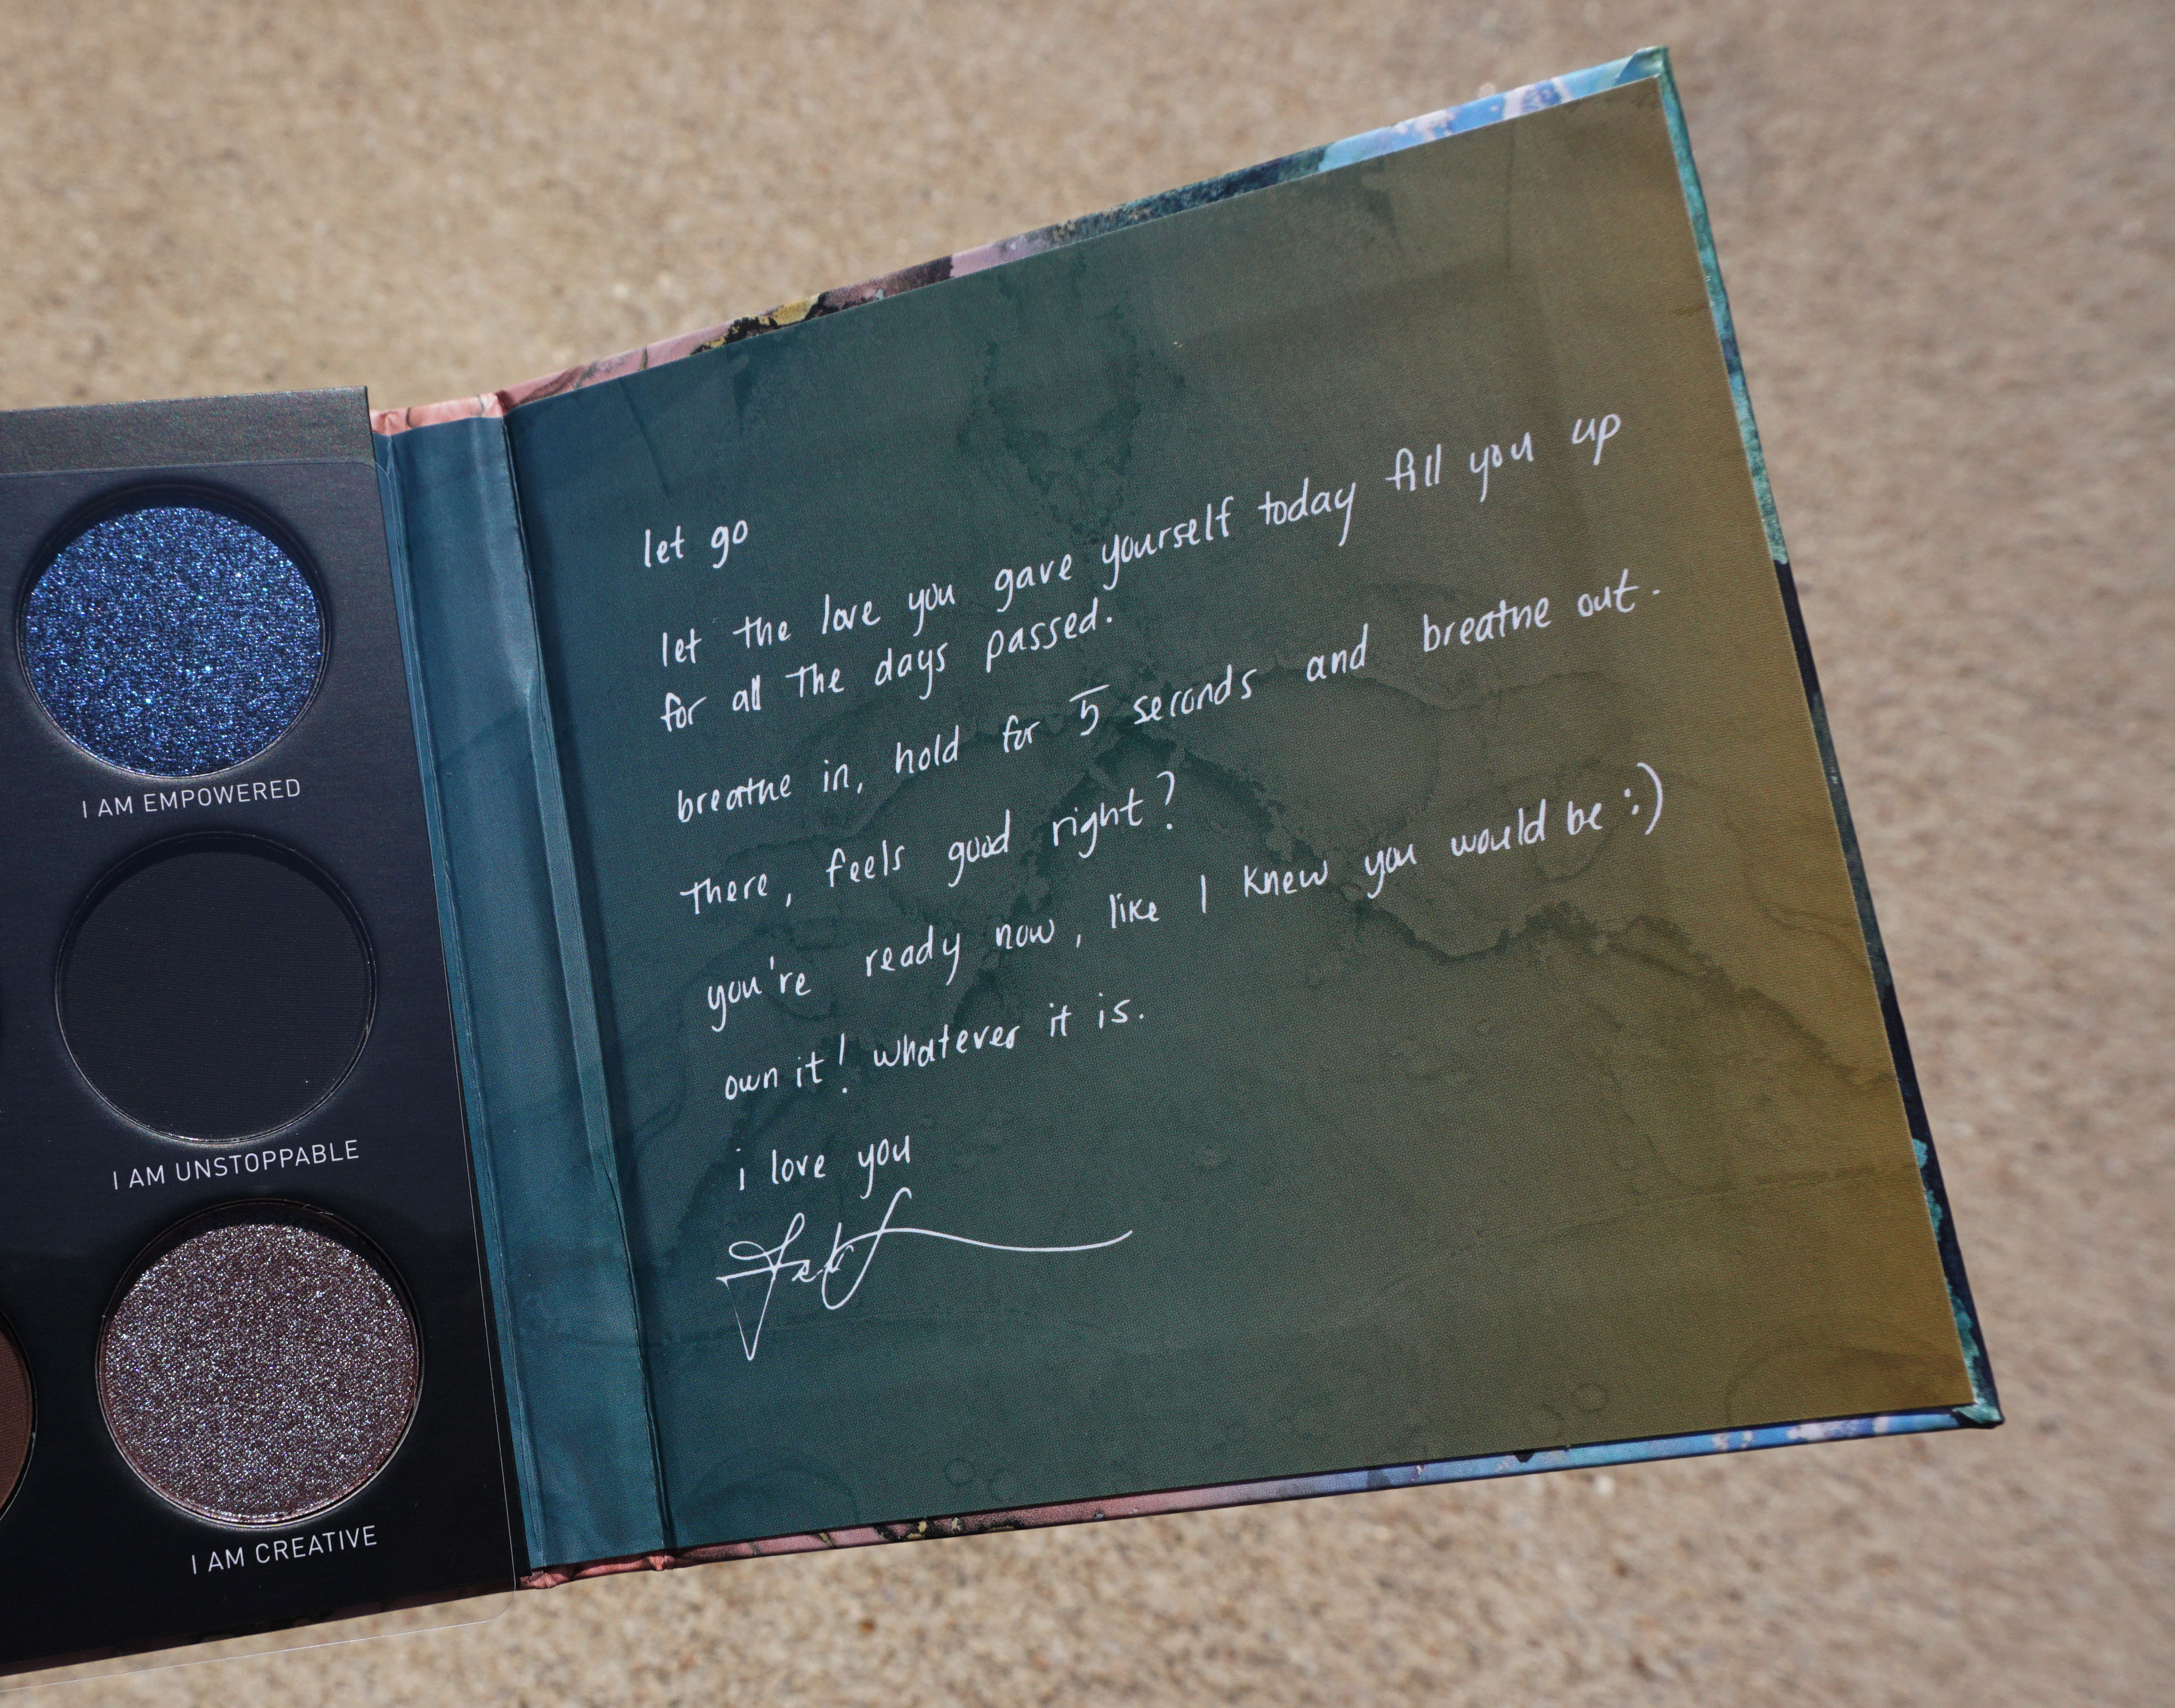 I AM EMPOWERED
I AM UNSTOPPABLE
I AM CREATIVE
let go
let the love you gave yourself today fill you up
for all the days passed.
breathe in, hold for 5 seconds and breathe out.
there, feels good right?
you're ready now, like I knew you would be :)
own it! whatever it is.
i love you